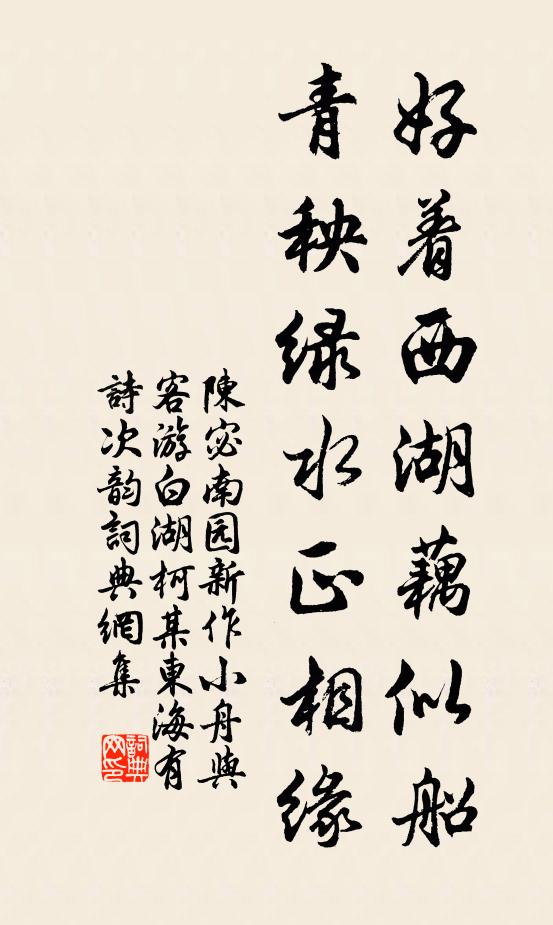 好着西湖藕似船
青秧绿水正相缘
陳宓南园新作小舟與
客游白湖柯某東海有
詩次韵詞典網集
詞典
网印